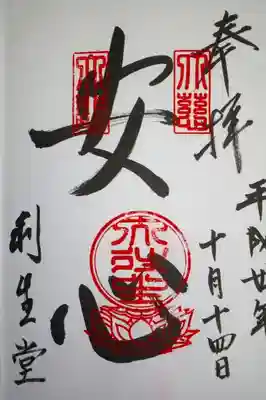 奉拝
平成廿年
十月十四日
大慈
安心
利生堂